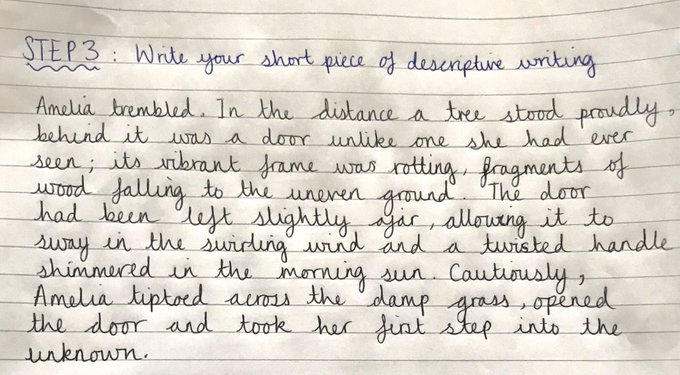 STEP 3 : Write your short piece of descriptive writing
Amelia trembled. In the distance a tree stood proudly,
behind it was a door unlike one she had ever
seen; its vibrant frame was rotting, fragments of
wood falling to the uneven ground. The door
had been left slightly ajar, allowing it to
sway in the swirling wind and a twisted handle
shimmered in the morning sun. Cautiously,
Amelia tiptoed across the damp grass, opened
the door and took her first step into the
unknown.